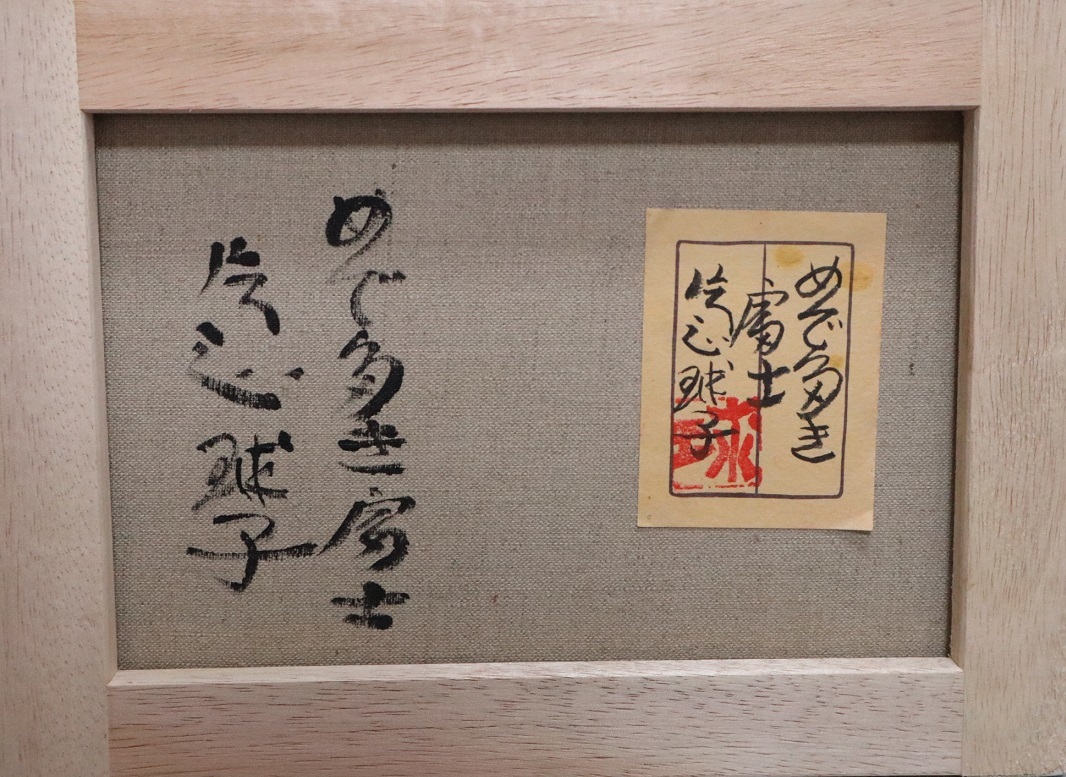 めで多き
富士
片岡球子
球
めで多き富士
片岡球子